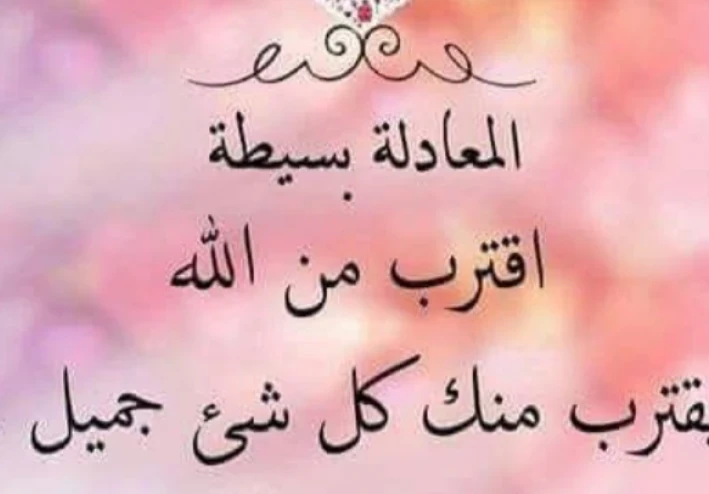 المعادلة بسيطة
اقترب من الله
يقترب منك كل شئ جميل